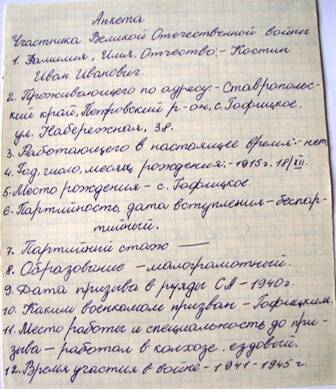 Анкета
Участника Великой Отечественной войны
1. Фамилия, Имя, Отчество:- Костин
Иван Иванович.
2. Проживающего по адресу:- Ставрополь-
ский край, Петровский р-он, с. Гофицкое,
ул. Набережная, 38.
3. Работающего в настоящее время:- нет
4. Год, число, месяц рождения:- 1915г. 18/XII.
5. Место рождения - с. Гофицкое
6. Партийность, дата вступления - беспар-
тийный.
7. Партийный стаж —
8. Образование - малограмотный.
9. Дата призыва в ряды СА - 1940г.
10. Каким военкоматом призван - Гофицким.
11. Место работы и специальность до при-
зыва - работал в колхозе, ездовый.
12. Время участия в войне - 1941 - 1945 г.